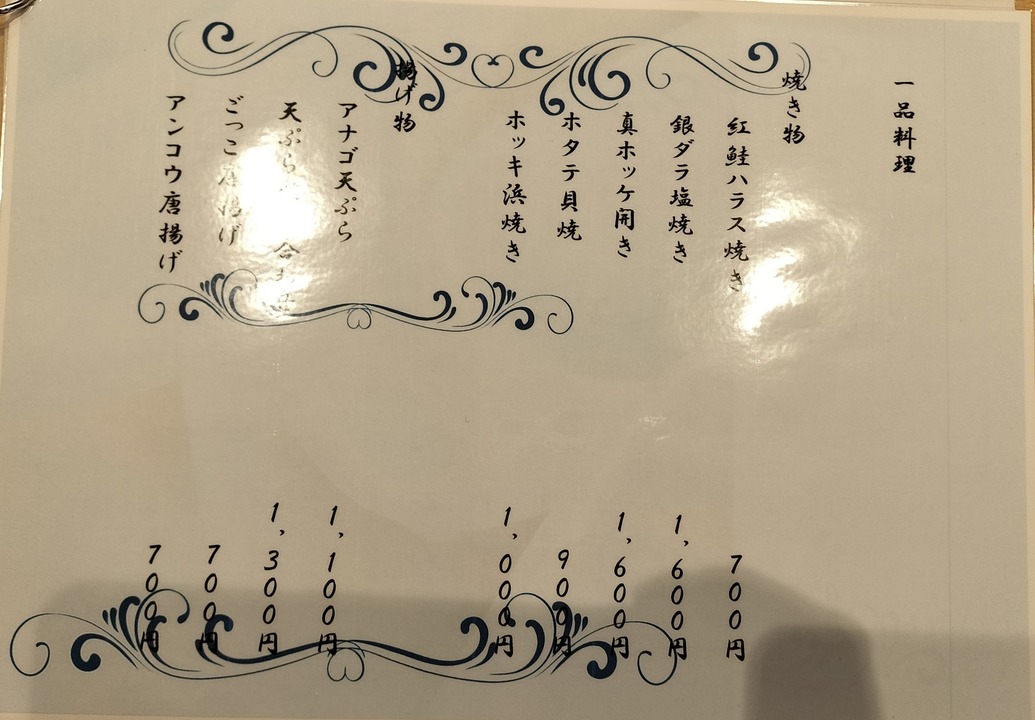 一品料理
焼き物
紅鮭ハラス焼き 700円
銀ダラ塩焼き 1,600円
真ホッケ開き 1,600円
ホタテ貝焼 900円
ホッキ浜焼き 1,000円
揚げ物
アナゴ天ぷら 1,100円
天ぷら 合 1,300円
ごっこ唐揚げ 700円
アンコウ唐揚げ 700円